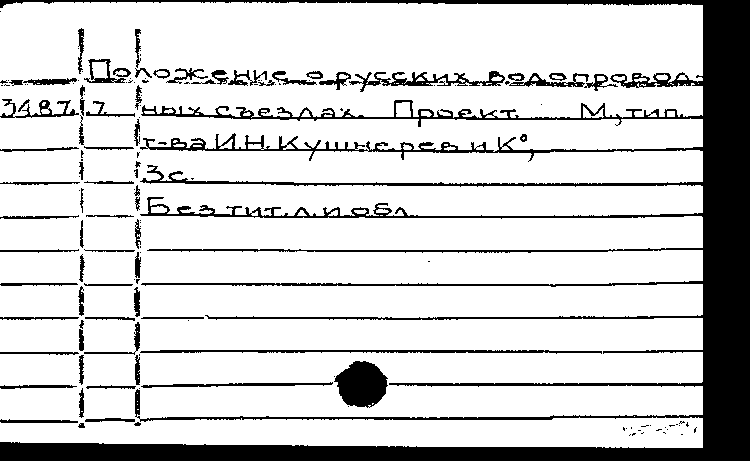 Положение о русских водопровод-
34.87.7 ных съездах. Проект. М., тип.
т-ва И.Н. Кушнерев и К°,
3 с.
Без тит. л. и обл.